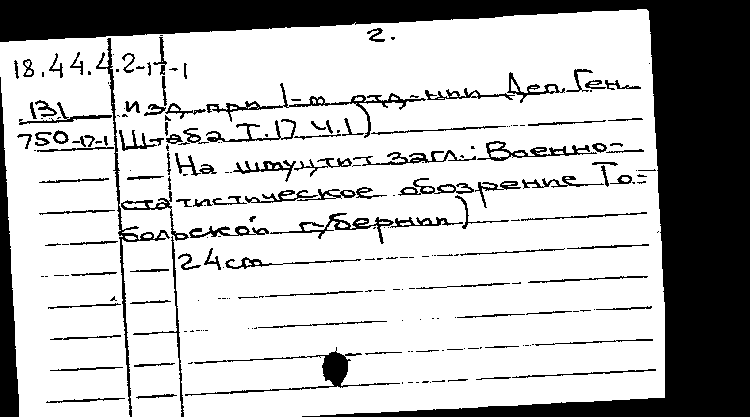 2.
18.44.4.2-17-1
131 изд. при 1-м отд-нии Деп. Ген.
750-17-1 Штаба Т.17 Ч.1)
На шмуцтит загл.: Военно-
статистическое обозрение То=
больской губернии)
24см